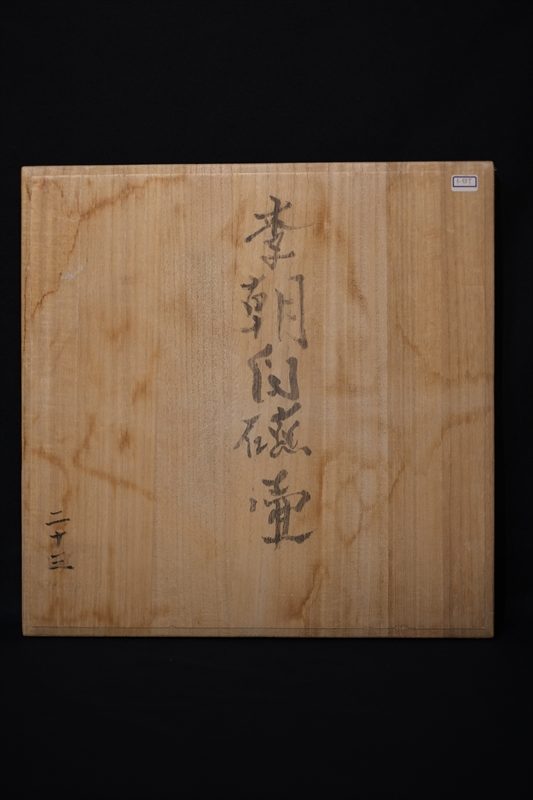 李朝白磁壷
二十三